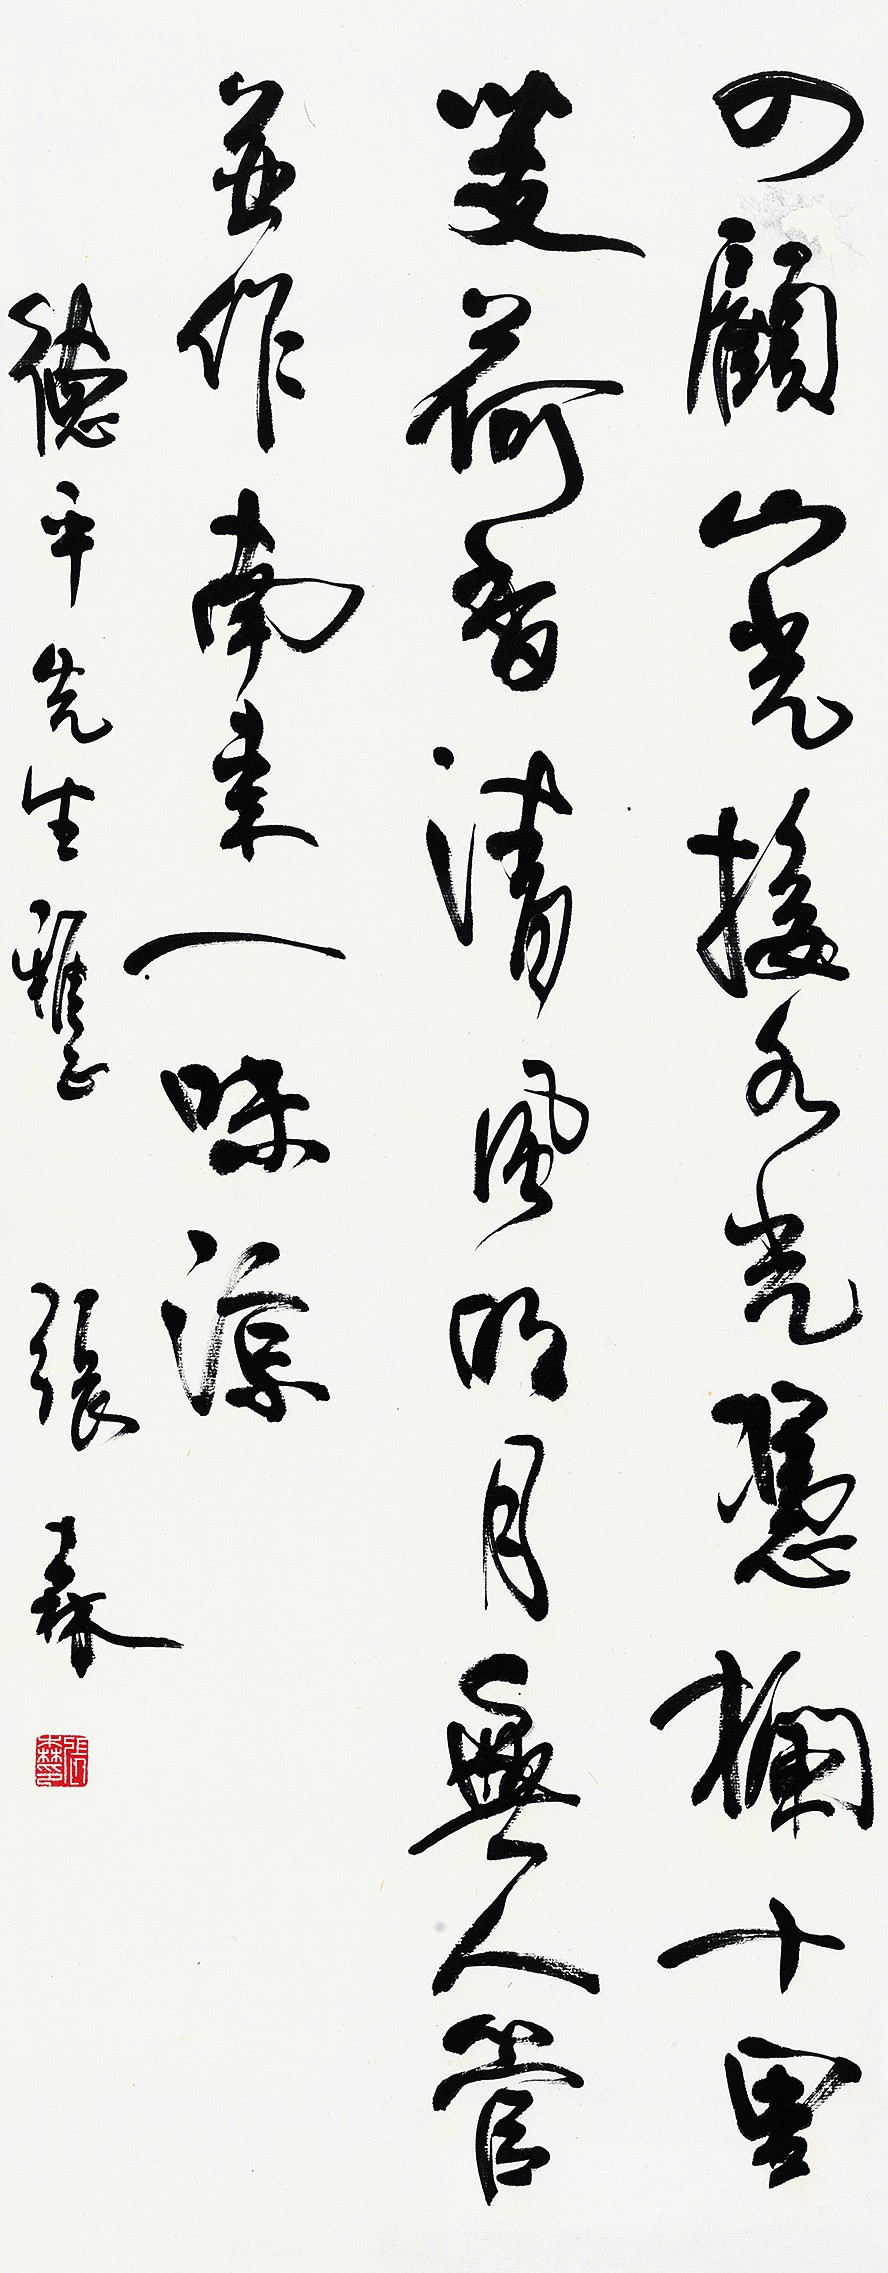 四顧山光接水光憑欄十里
芰荷香清風明月無人管
並作南來一味涼
德平先生雅正
張森
張森印